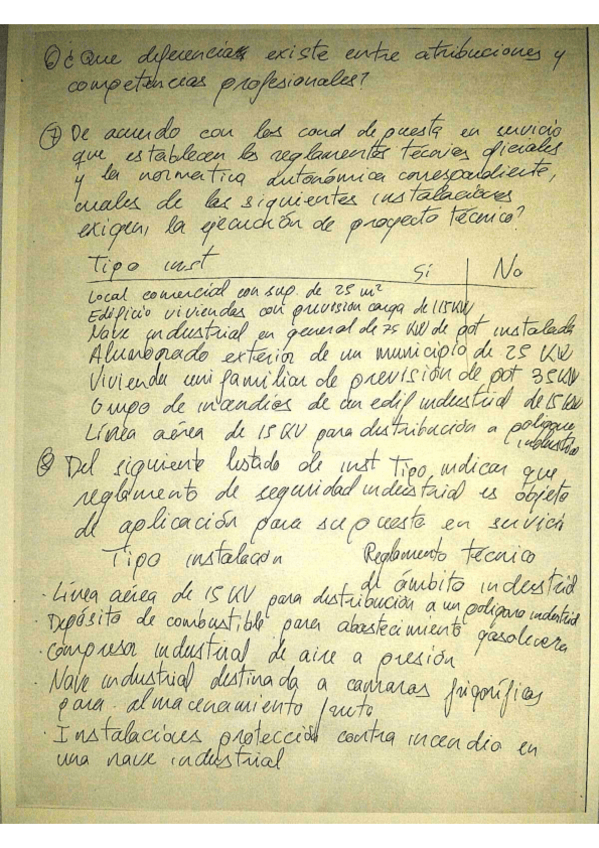 ⑥ ¿Que diferencias existe entre atribuciones y
competencias profesionales?
⑦ De acuerdo con las cond de puesta en servicio
que establecen los reglamentos técnicos oficiales
y la normativa autonómica correspondiente,
cuales de las siguientes instalaciones
exigen, la ejecución de proyecto técnico?
Tipo inst Sí No
Local comercial con sup. de 25 m²
Edificio viviendas con previsión carga de 115KW
Nave industrial en general de 75 KW de pot instalada
Alumbrado exterior de un municipio de 25 KW
Vivienda unifamiliar de previsión de pot 35KW
Grupo de incendios de un edif industrial de 15 KW
Línea aérea de 15 KV para distribución a polígono
industrial
⑧ Del siguiente listado de inst Tipo, indicar que
reglamento de seguridad industrial es objeto
de aplicación para su puesta en servicio
Tipo instalación Reglamento técnico
del ámbito industrial
· Línea aérea de 15 KV para distribución a un polígono industrial
· Depósito de combustible para abastecimiento gasolinera
· Compresor industrial de aire a presión
· Nave industrial destinada a camaras frigoríficas
para almacenamiento fruto
· Instalaciones protección contra incendio en
una nave industrial